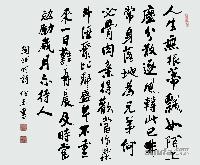 人生無根蒂飄如陌上
塵分散逐風轉此已非
常身落地為兄弟何
必骨肉親得歡當作樂
斗酒聚比鄰盛年不重
來一日難再晨及時當
勉勵歲月不待人
陶淵明詩